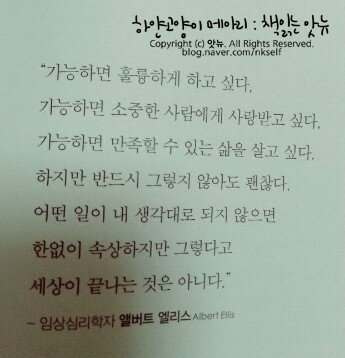 하얀고양이 메아리 : 책읽는 맛뉴
Copyright (c) 맛뉴. All Rights Reserved.
blog.naver.com/nkself
“가능하면 훌륭하게 하고 싶다,
가능하면 소중한 사람에게 사랑받고 싶다,
가능하면 만족할 수 있는 삶을 살고 싶다.
하지만 반드시 그렇지 않아도 괜찮다.
어떤 일이 내 생각대로 되지 않으면
한없이 속상하지만 그렇다고
세상이 끝나는 것은 아니다.”
– 임상심리학자 앨버트 엘리스 Albert Ellis